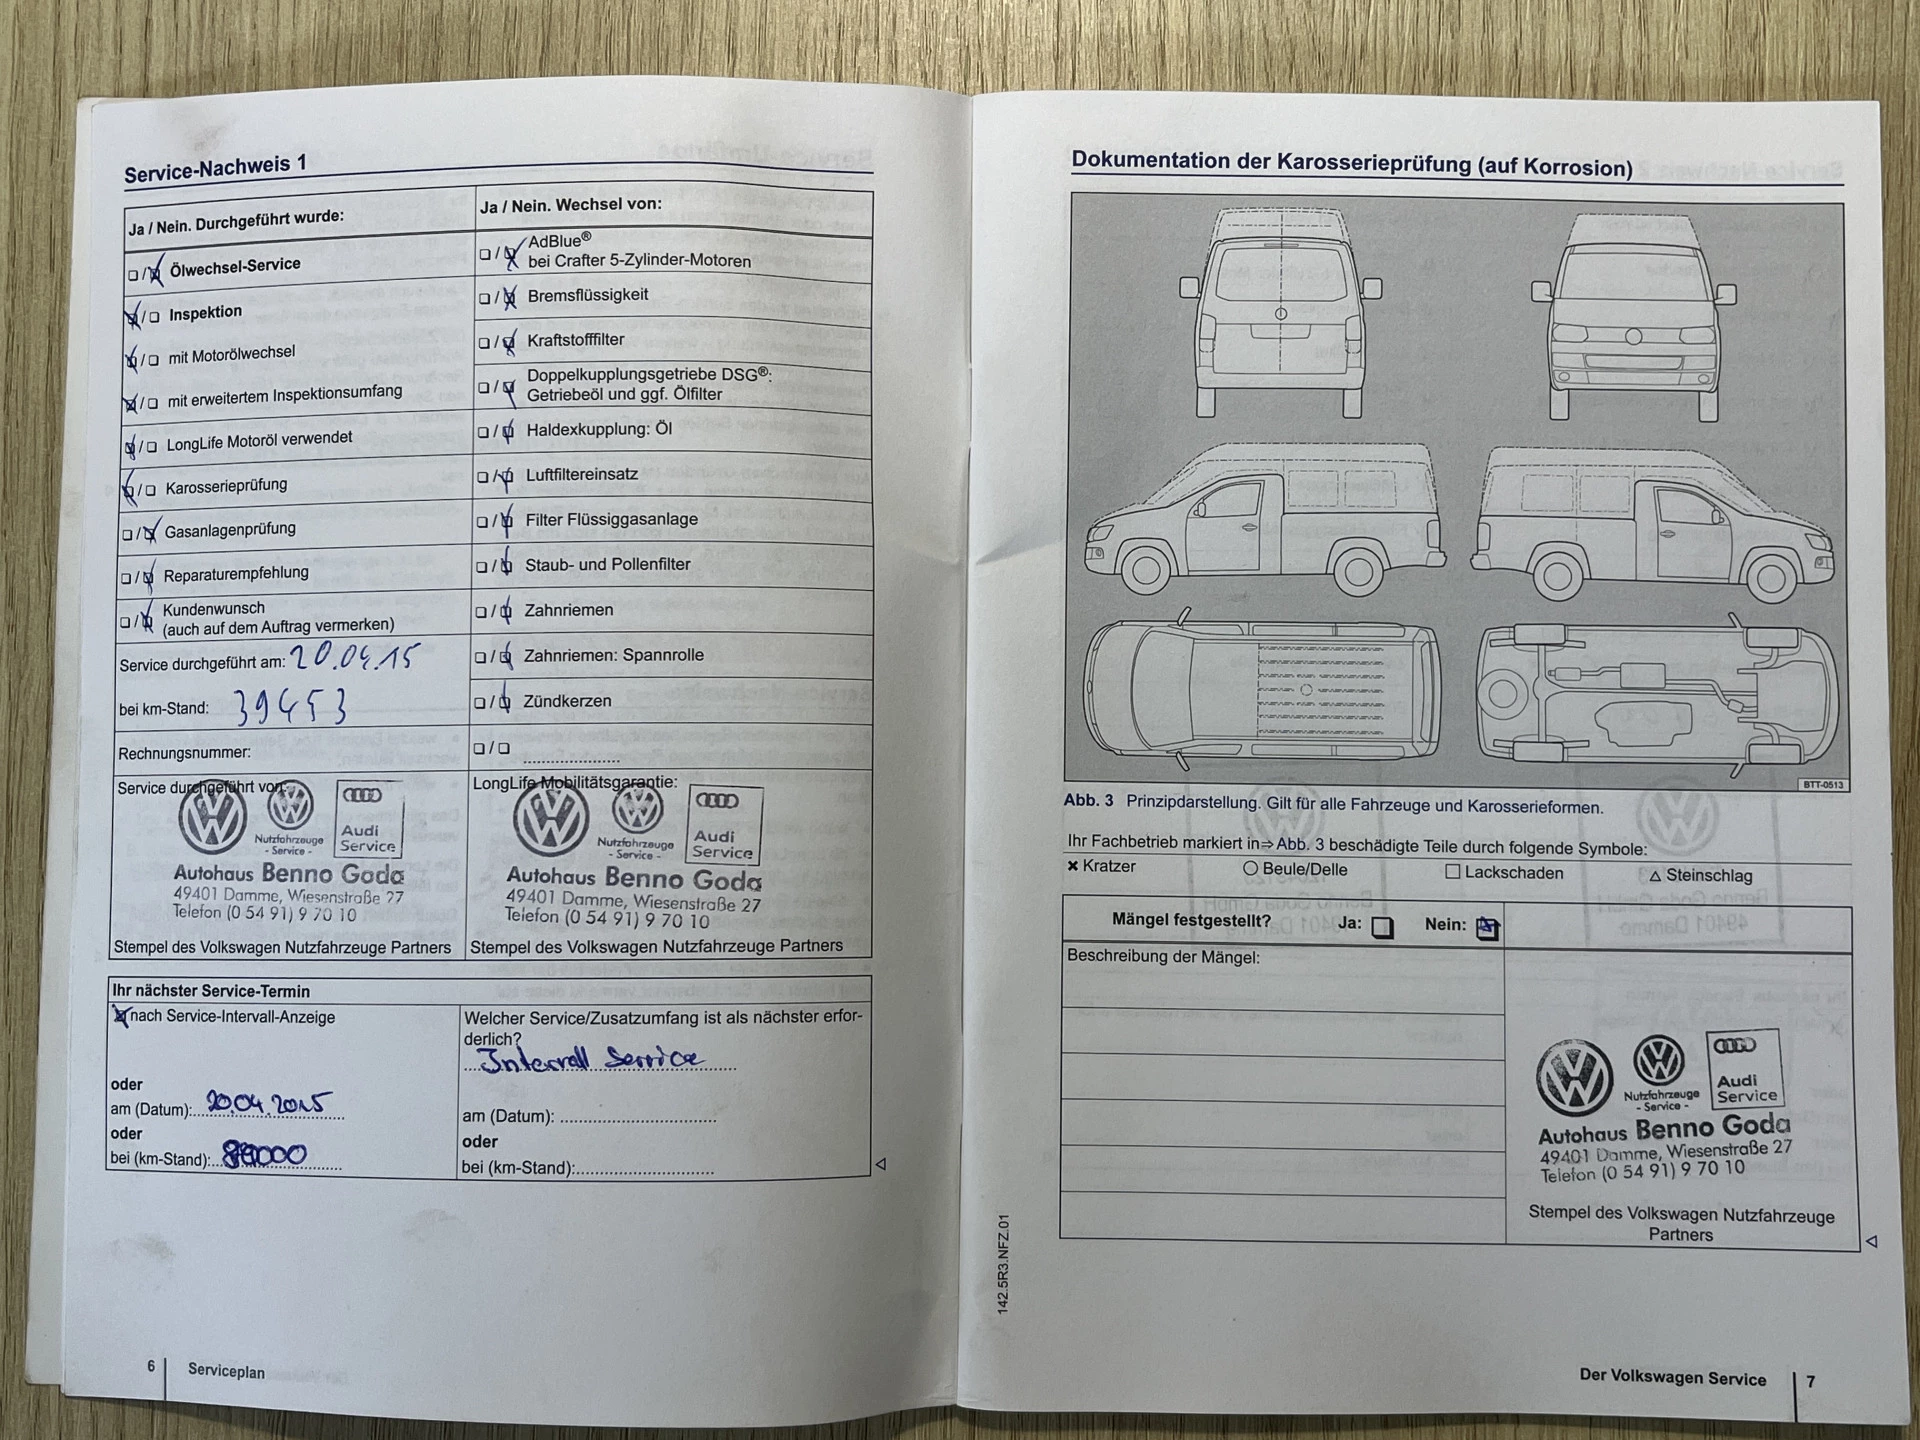 Service-Nachweis 1
Ja / Nein. Durchgeführt wurde:
Ölwechsel-Service
Inspektion
mit Motorölwechsel
mit erweitertem Inspektionsumfang
LongLife Motoröl verwendet
Karosserieprüfung
Gasanlagenprüfung
Reparaturempfehlung
Kundenwunsch
(auch auf dem Auftrag vermerken)
Service durchgeführt am: 20.04.15
bei km-Stand: 39453
Rechnungsnummer:
Ja / Nein. Wechsel von:
AdBlue®
bei Crafter 5-Zylinder-Motoren
Bremsflüssigkeit
Kraftstofffilter
Doppelkupplungsgetriebe DSG®:
Getriebeöl und ggf. Ölfilter
Haldexkupplung: Öl
Luftfiltereinsatz
Filter Flüssiggasanlage
Staub- und Pollenfilter
Zahnriemen
Zahnriemen: Spannrolle
Zündkerzen
Service durchgeführt von:
Nutzfahrzeuge
- Service -
Audi
Service
Autohaus Benno Goda
49401 Damme, Wiesenstraße 27
Telefon (0 54 91) 9 70 10
Stempel des Volkswagen Nutzfahrzeuge Partners
LongLife Mobilitätsgarantie:
Nutzfahrzeuge
- Service -
Audi
Service
Autohaus Benno Goda
49401 Damme, Wiesenstraße 27
Telefon (0 54 91) 9 70 10
Stempel des Volkswagen Nutzfahrzeuge Partners
Ihr nächster Service-Termin
nach Service-Intervall-Anzeige
oder
am (Datum): 20.04.2015
oder
bei (km-Stand):
Welcher Service/Zusatzumfang ist als nächster erfor-
derlich?
Intervall Service
am (Datum):
oder
bei (km-Stand):
6 Serviceplan
Dokumentation der Karosserieprüfung (auf Korrosion)
BTT-0513
Abb. 3 Prinzipdarstellung. Gilt für alle Fahrzeuge und Karosserieformen.
Ihr Fachbetrieb markiert in⇒Abb. 3 beschädigte Teile durch folgende Symbole:
× Kratzer ○ Beule/Delle □ Lackschaden △ Steinschlag
Mängel festgestellt? Ja: Nein:
Beschreibung der Mängel:
Nutzfahrzeuge
- Service -
Audi
Service
Autohaus Benno Goda
49401 Damme, Wiesenstraße 27
Telefon (0 54 91) 9 70 10
Stempel des Volkswagen Nutzfahrzeuge
Partners
142.5R3.NFZ.01
Der Volkswagen Service 7